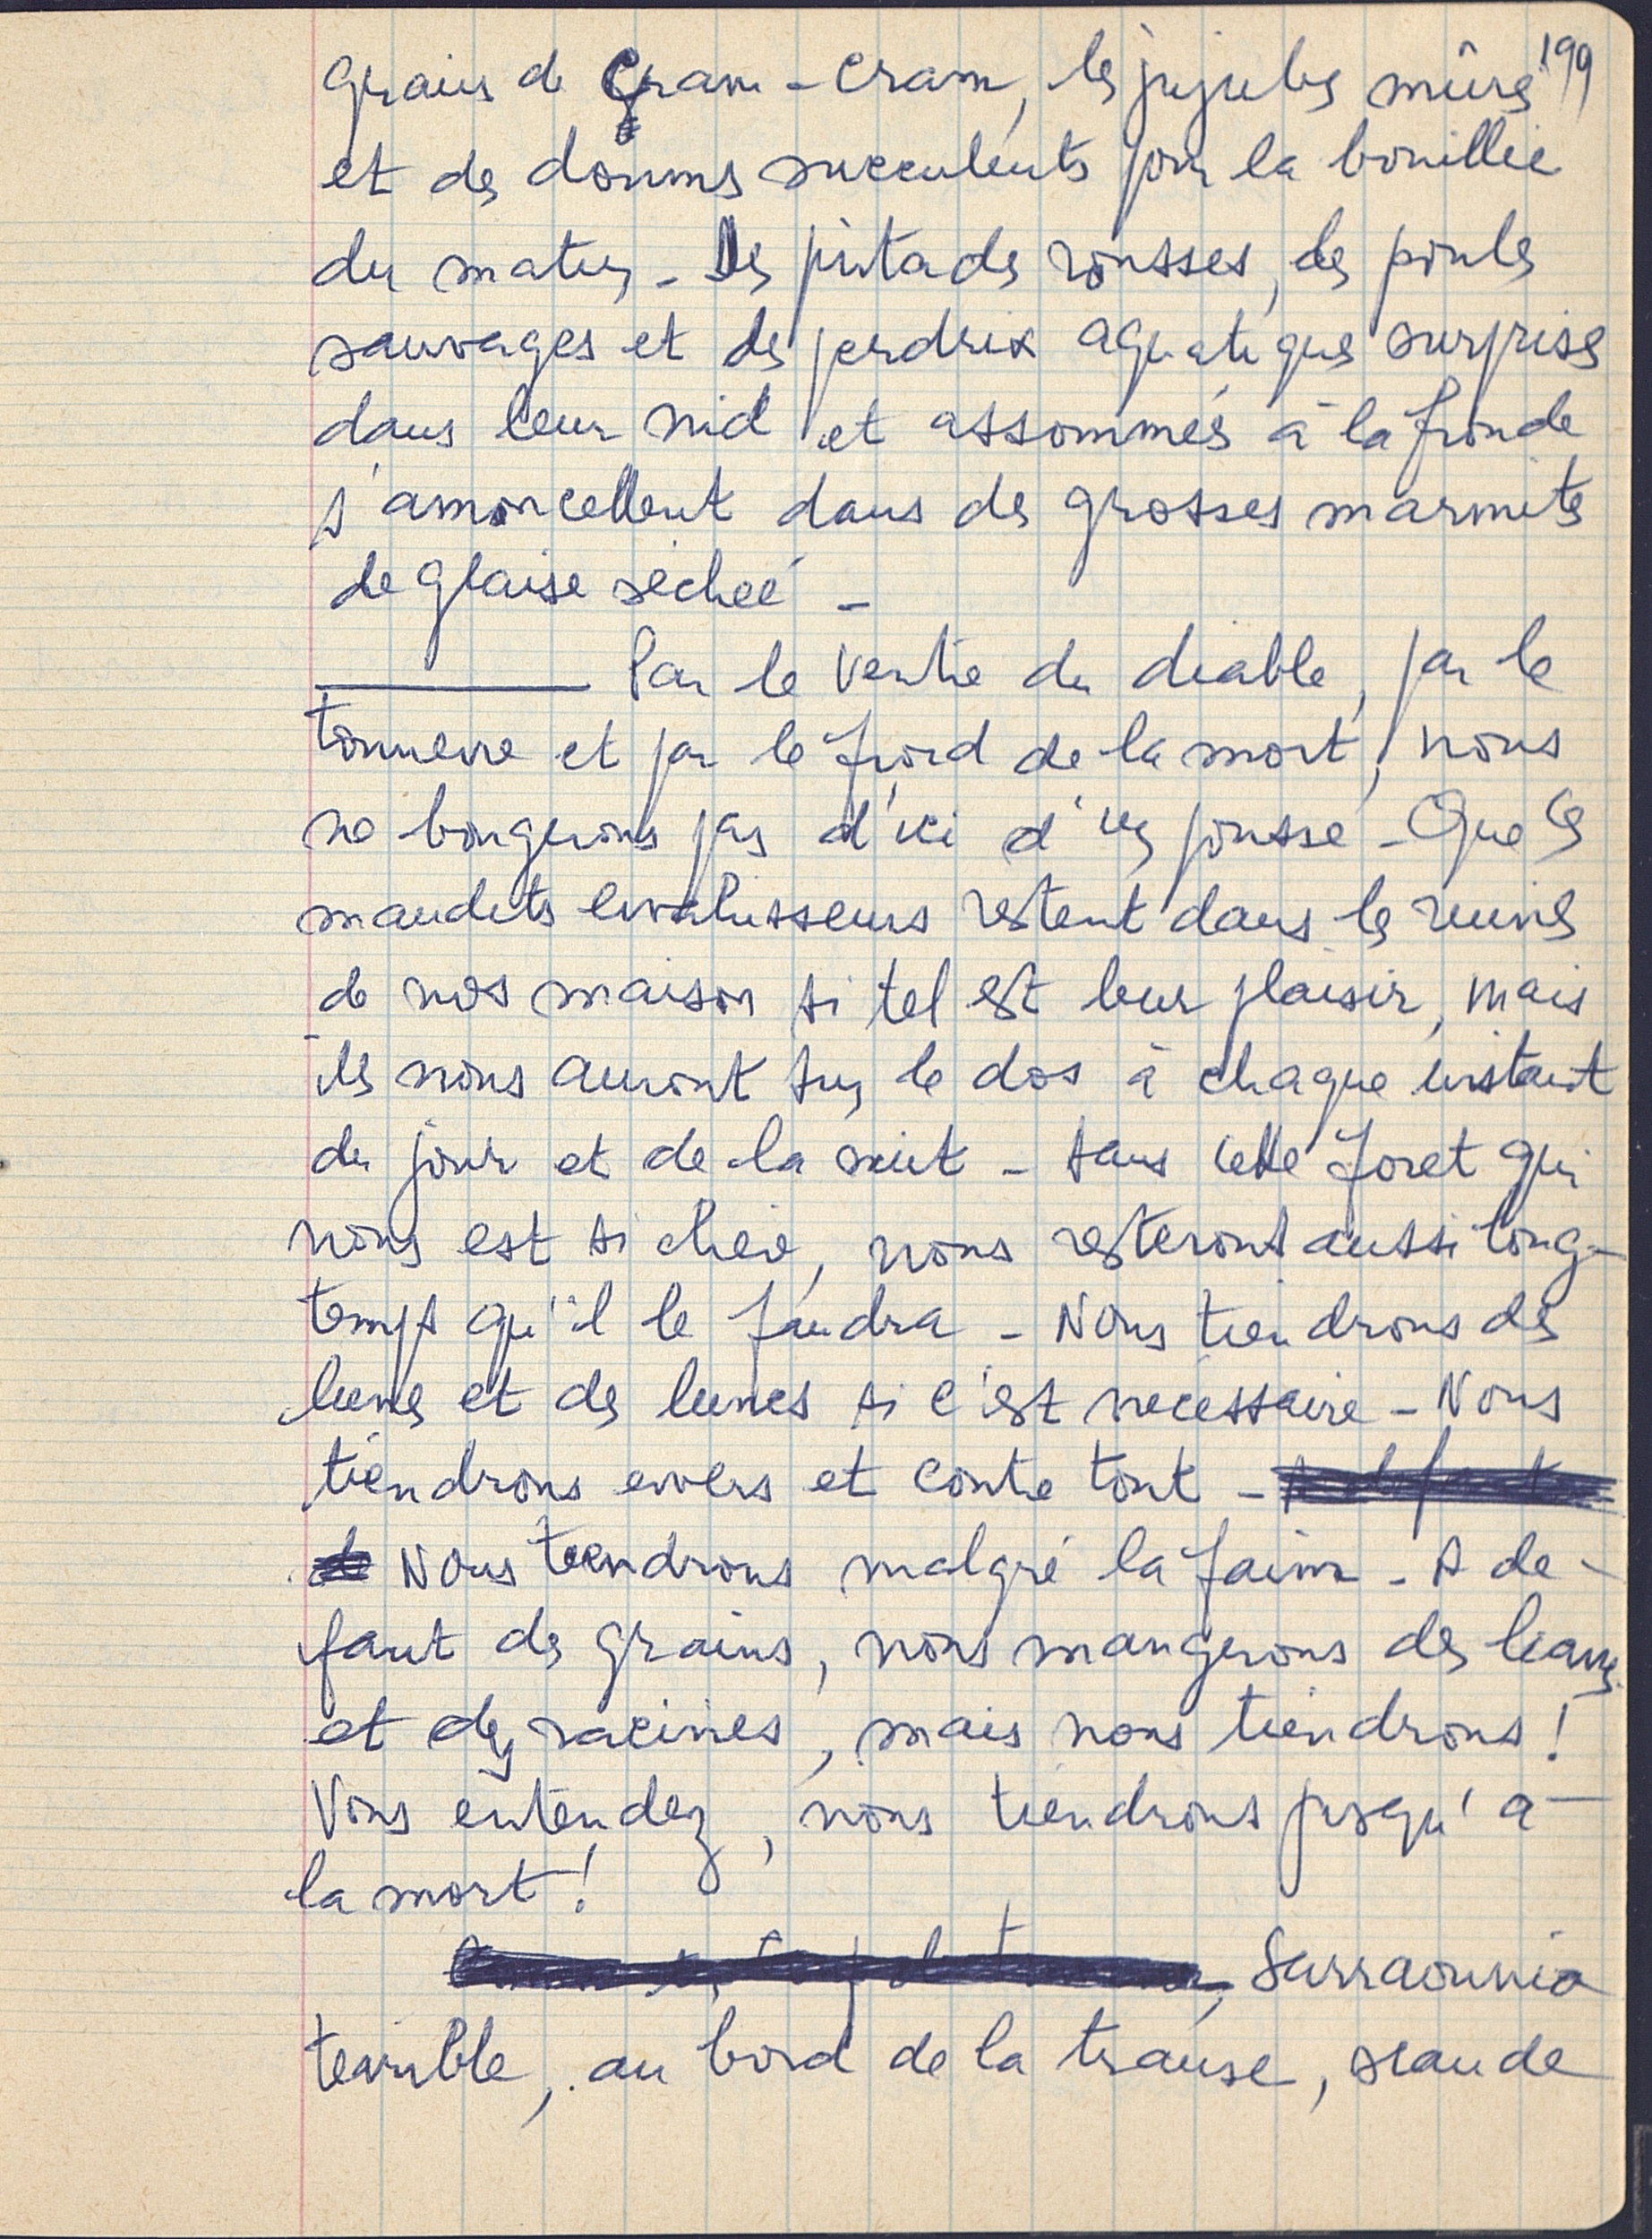 199
grains de cram-cram, les jujubes mûrs
et des doums succulents pour la bouillie
du matin - Des pintades rousses, des poules
sauvages et des perdrix aquatiques surprises
dans leur nid et assommés à la fronde
s'amoncellent dans des grosses marmites
de glaise séchée -
Par le ventre du diable, par le
tonnerre et par le froid de la mort, nous
ne bougerons pas d'ici d'un pousse - Que les
maudits envahisseurs restent dans les ruines
de nos maison si tel est leur plaisir, mais
ils nous auront sur le dos à chaque instant
du jour et de la nuit - Dans cette foret qui
nous est si chère, nous resterons aussi long-
temps qu'il le faudra - Nous tiendrons des
lunes et des lunes si c'est nécessaire - Nous
tiendrons envers et contre tout -
Nous tiendrons malgré la faim - A de-
faut des grains, nous mangerons des lianes
et des racines, mais nous tiendrons !
Vous entendez, nous tiendrons jusqu'à
la mort !
Sarraounia
terrible, au bord de la transe, scande